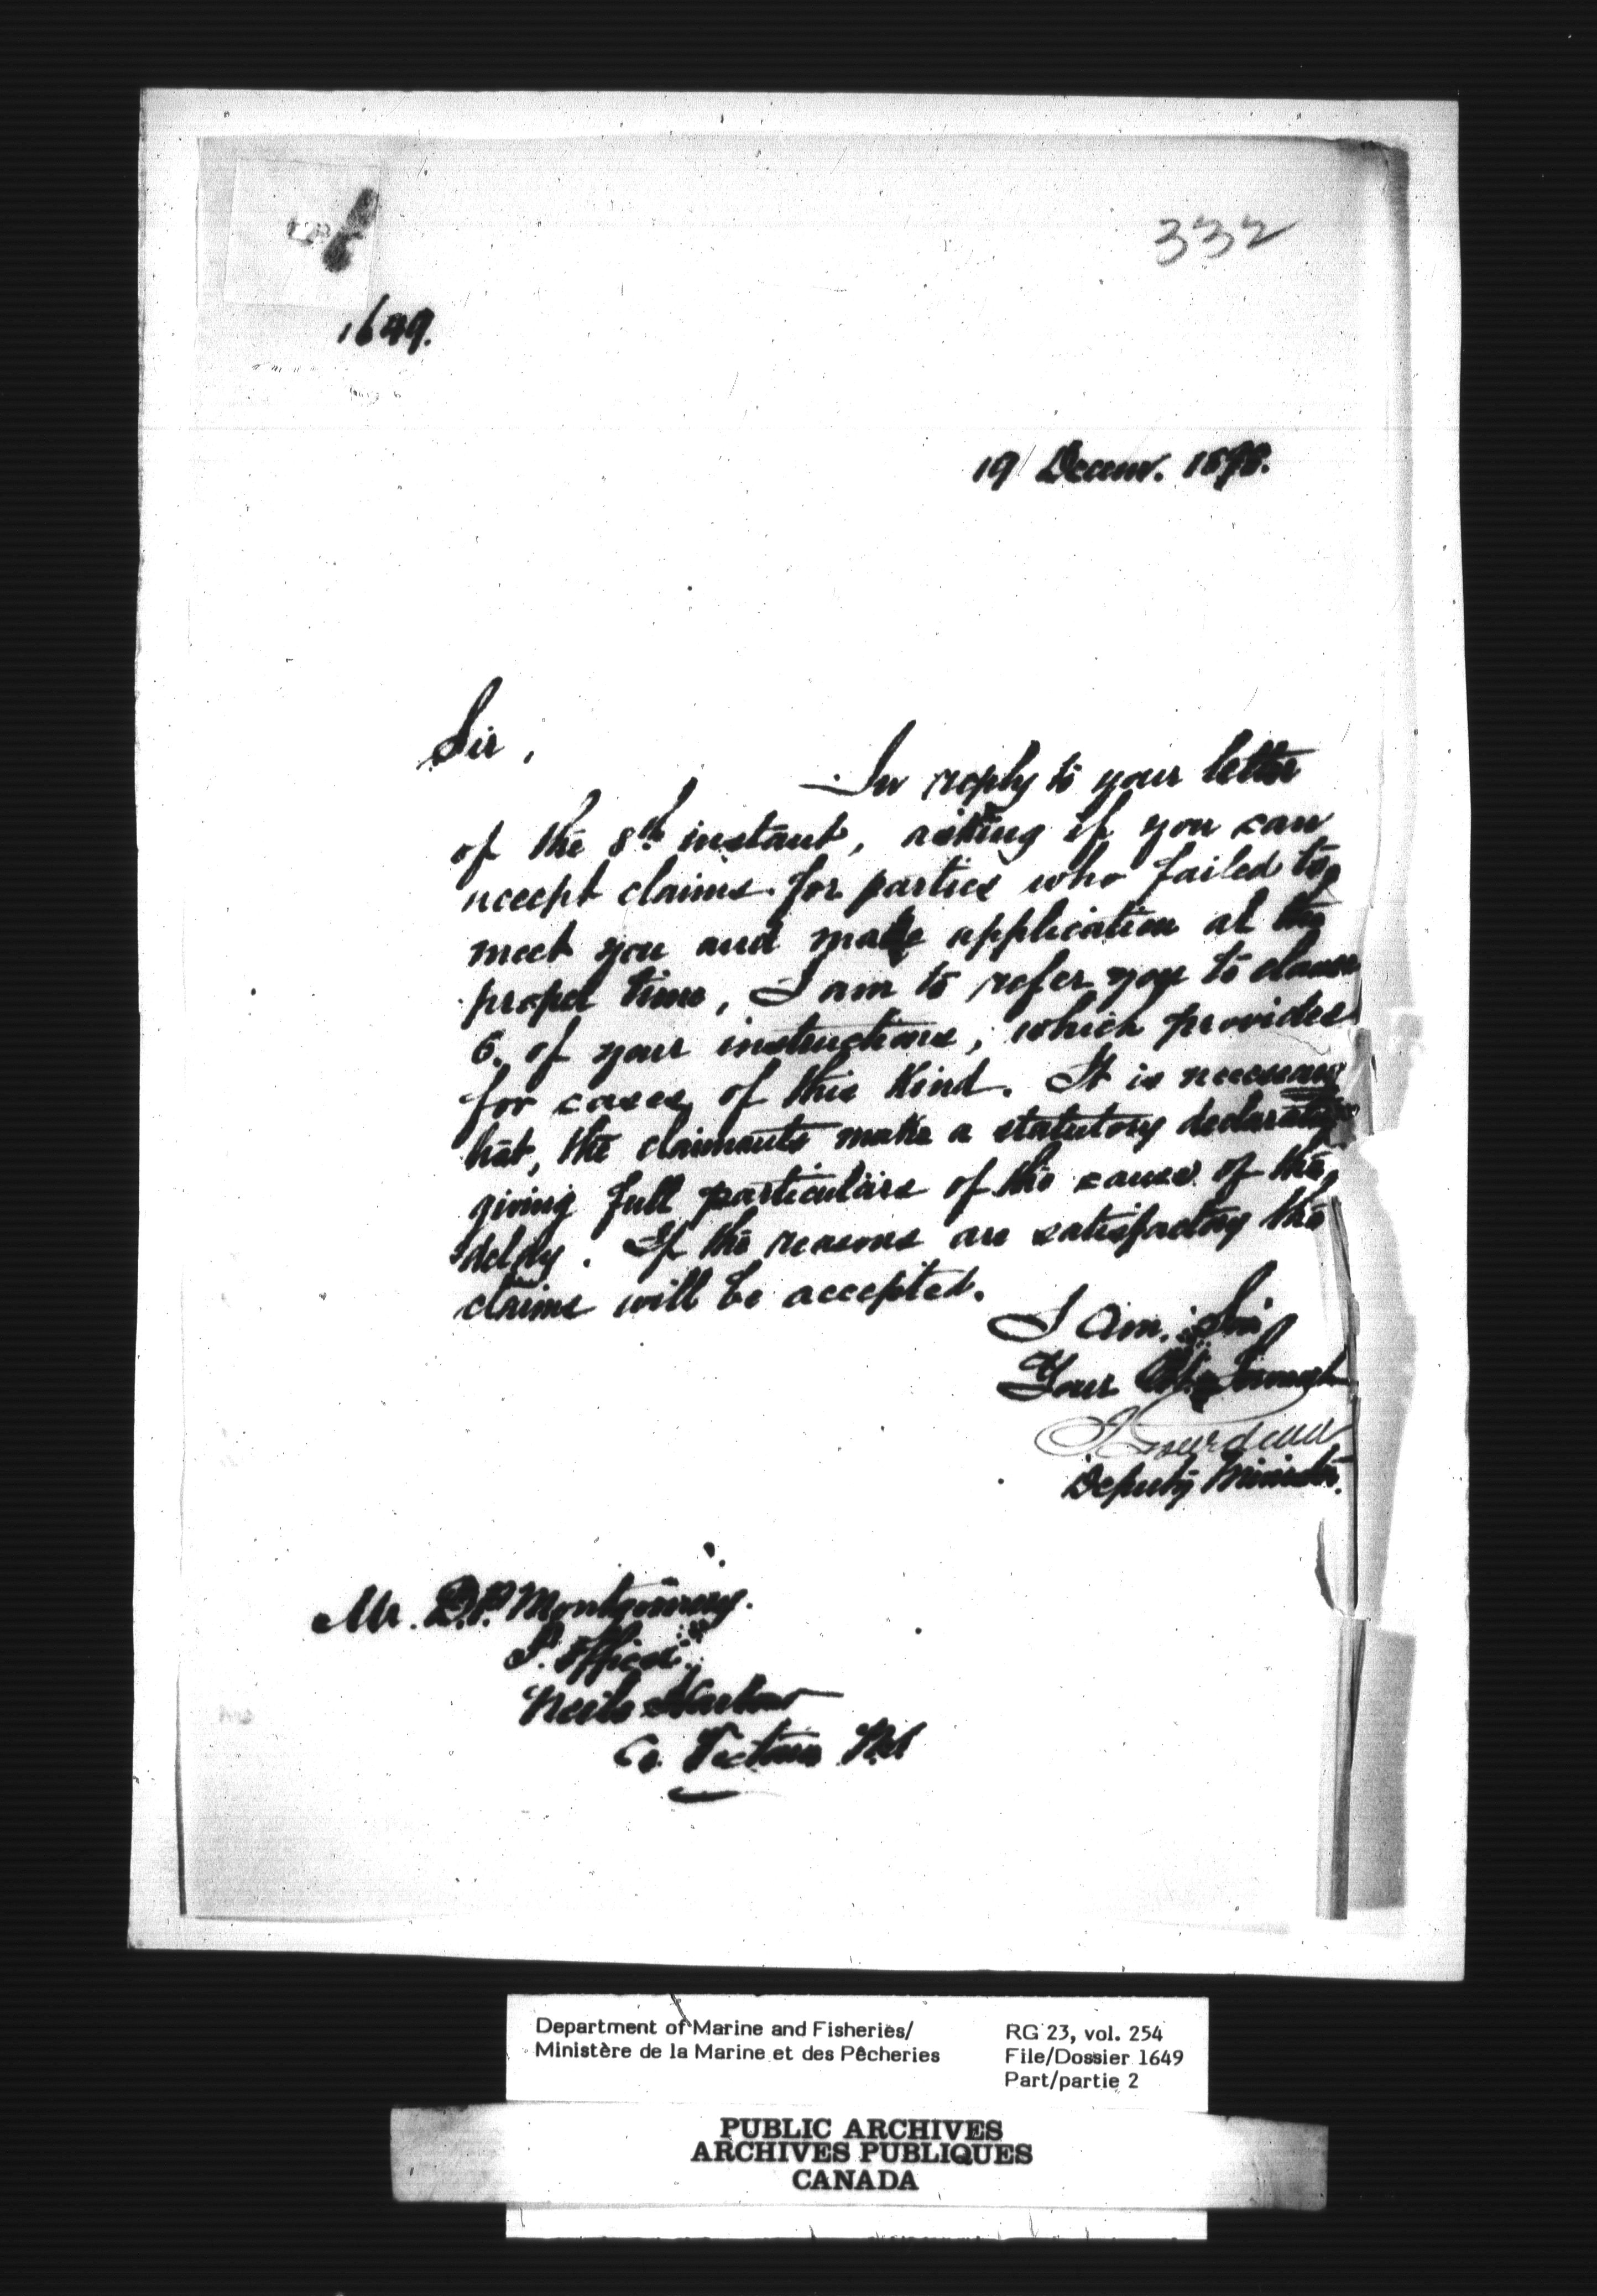 332
1649.
19 Decem. 1898.
Sir,
In reply to your letter
of the 8th instant, asking if you can
accept claims for parties who failed to
meet you and make application at the
proper time, I am to refer you to clause
6. of your instructions, which provides
for cases of this kind. It is necessary
that, the claimants make a statutory declaration
giving full particulars of the cause of the
delay. If the reasons are satisfactory the
claims will be accepted.
I am, Sir
Your
F Gourdeau
Deputy Minister.
Mr. D.P. Montgomery.
F. Officer
Neils Harbour
Co. Victoria N.S
Department of Marine and Fisheries/
Ministère de la Marine et des Pêcheries
RG 23, vol. 254
File/Dossier 1649
Part/partie 2
PUBLIC ARCHIVES
ARCHIVES PUBLIQUES
CANADA